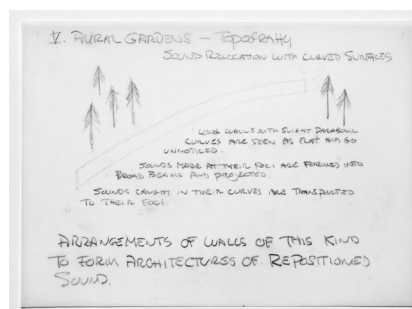 V. AURAL GARDENS — TOPOGRAPHY
SOUND RELOCATION WITH CURVED SURFACES
LONG WALLS WITH SLIGHT PARABOLIC
CURVES ARE SEEN AS FLAT AND GO
UNNOTICED.
SOUNDS MADE AT THEIR FOCI ARE FORMED INTO
BROAD BEAMS AND PROJECTED.
SOUNDS CAUGHT IN THEIR CURVES ARE TRANSPORTED
TO THEIR FOCI.
ARRANGEMENTS OF WALLS OF THIS KIND
TO FORM ARCHITECTURES OF REPOSITIONED
SOUND.